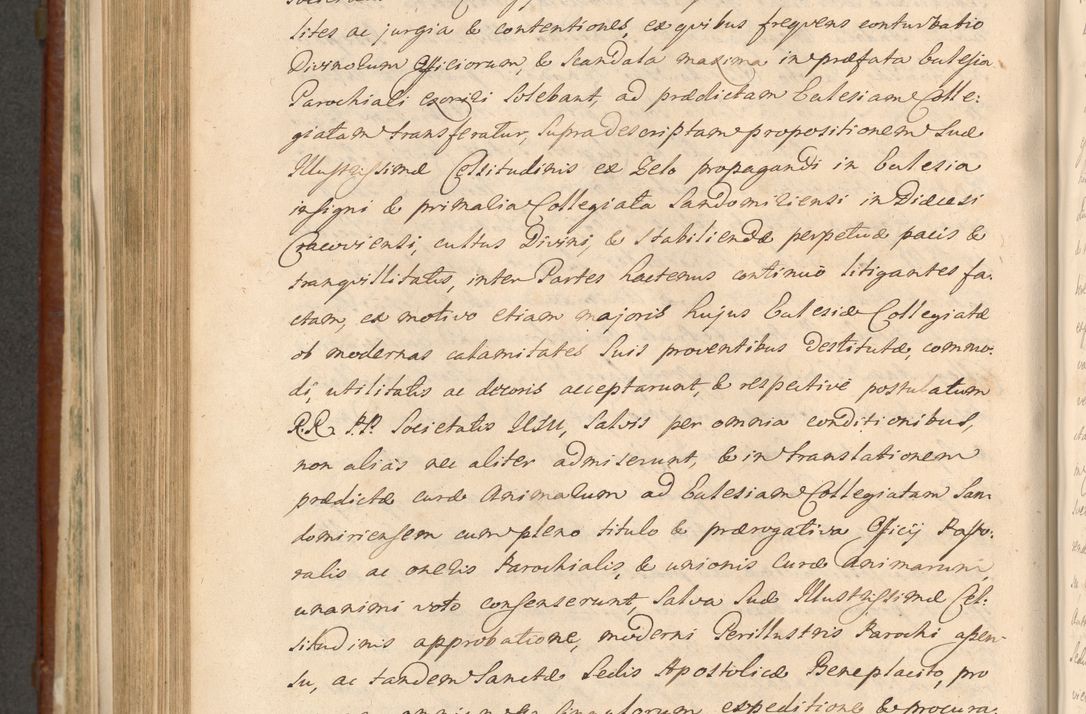 lites ac jurgia & contentiones, ex quibus frequens conturbatio
Divinorum Officiorum, & scandala maxima in præfata Ecclesia
Parochiali exoriri solebant, ad prædictam Ecclesiam Colle:
giatam transferatur, supradescriptam propositionem Suæ
Illustrissimæ Celsitudinis ex Zelo propagandi in Ecclesia
insigni & primalia Collegiata Sandomiriensi in Diæcesi
Cracoviensi, cultus Divini, & stabiliendæ perpetuæ pacis &
tranquillitatis, inter Partes hactenus continuò litigantes fa:
ctam, ex motivo etiam majoris hujus Ecclesiæ Collegiatæ
ob modernas calamitates suis proventibus destitutæ, commo:
di, utilitatis ac decoris acceptarunt, & respectivè postulatum
R.R. P.P. Societatis JESU, salvis per omnia conditionibus,
non aliàs nec aliter admiserunt, & in translationem
prædictæ curæ Animarum ad Ecclesiam Collegiatam San:
domiriensem cum pleno titulo & prærogativa Officij Pasto:
ralis ac oneris Parochialis, & unionis Curæ Animarum,
unanimi voto consenserunt, salva Suæ Illustrissimæ Cel:
situdinis approbatione, moderni Perillustris Parochi assen:
su, ac tandem Sanctæ Sedis Apostolicæ Beneplacito, pro
expeditione & procura